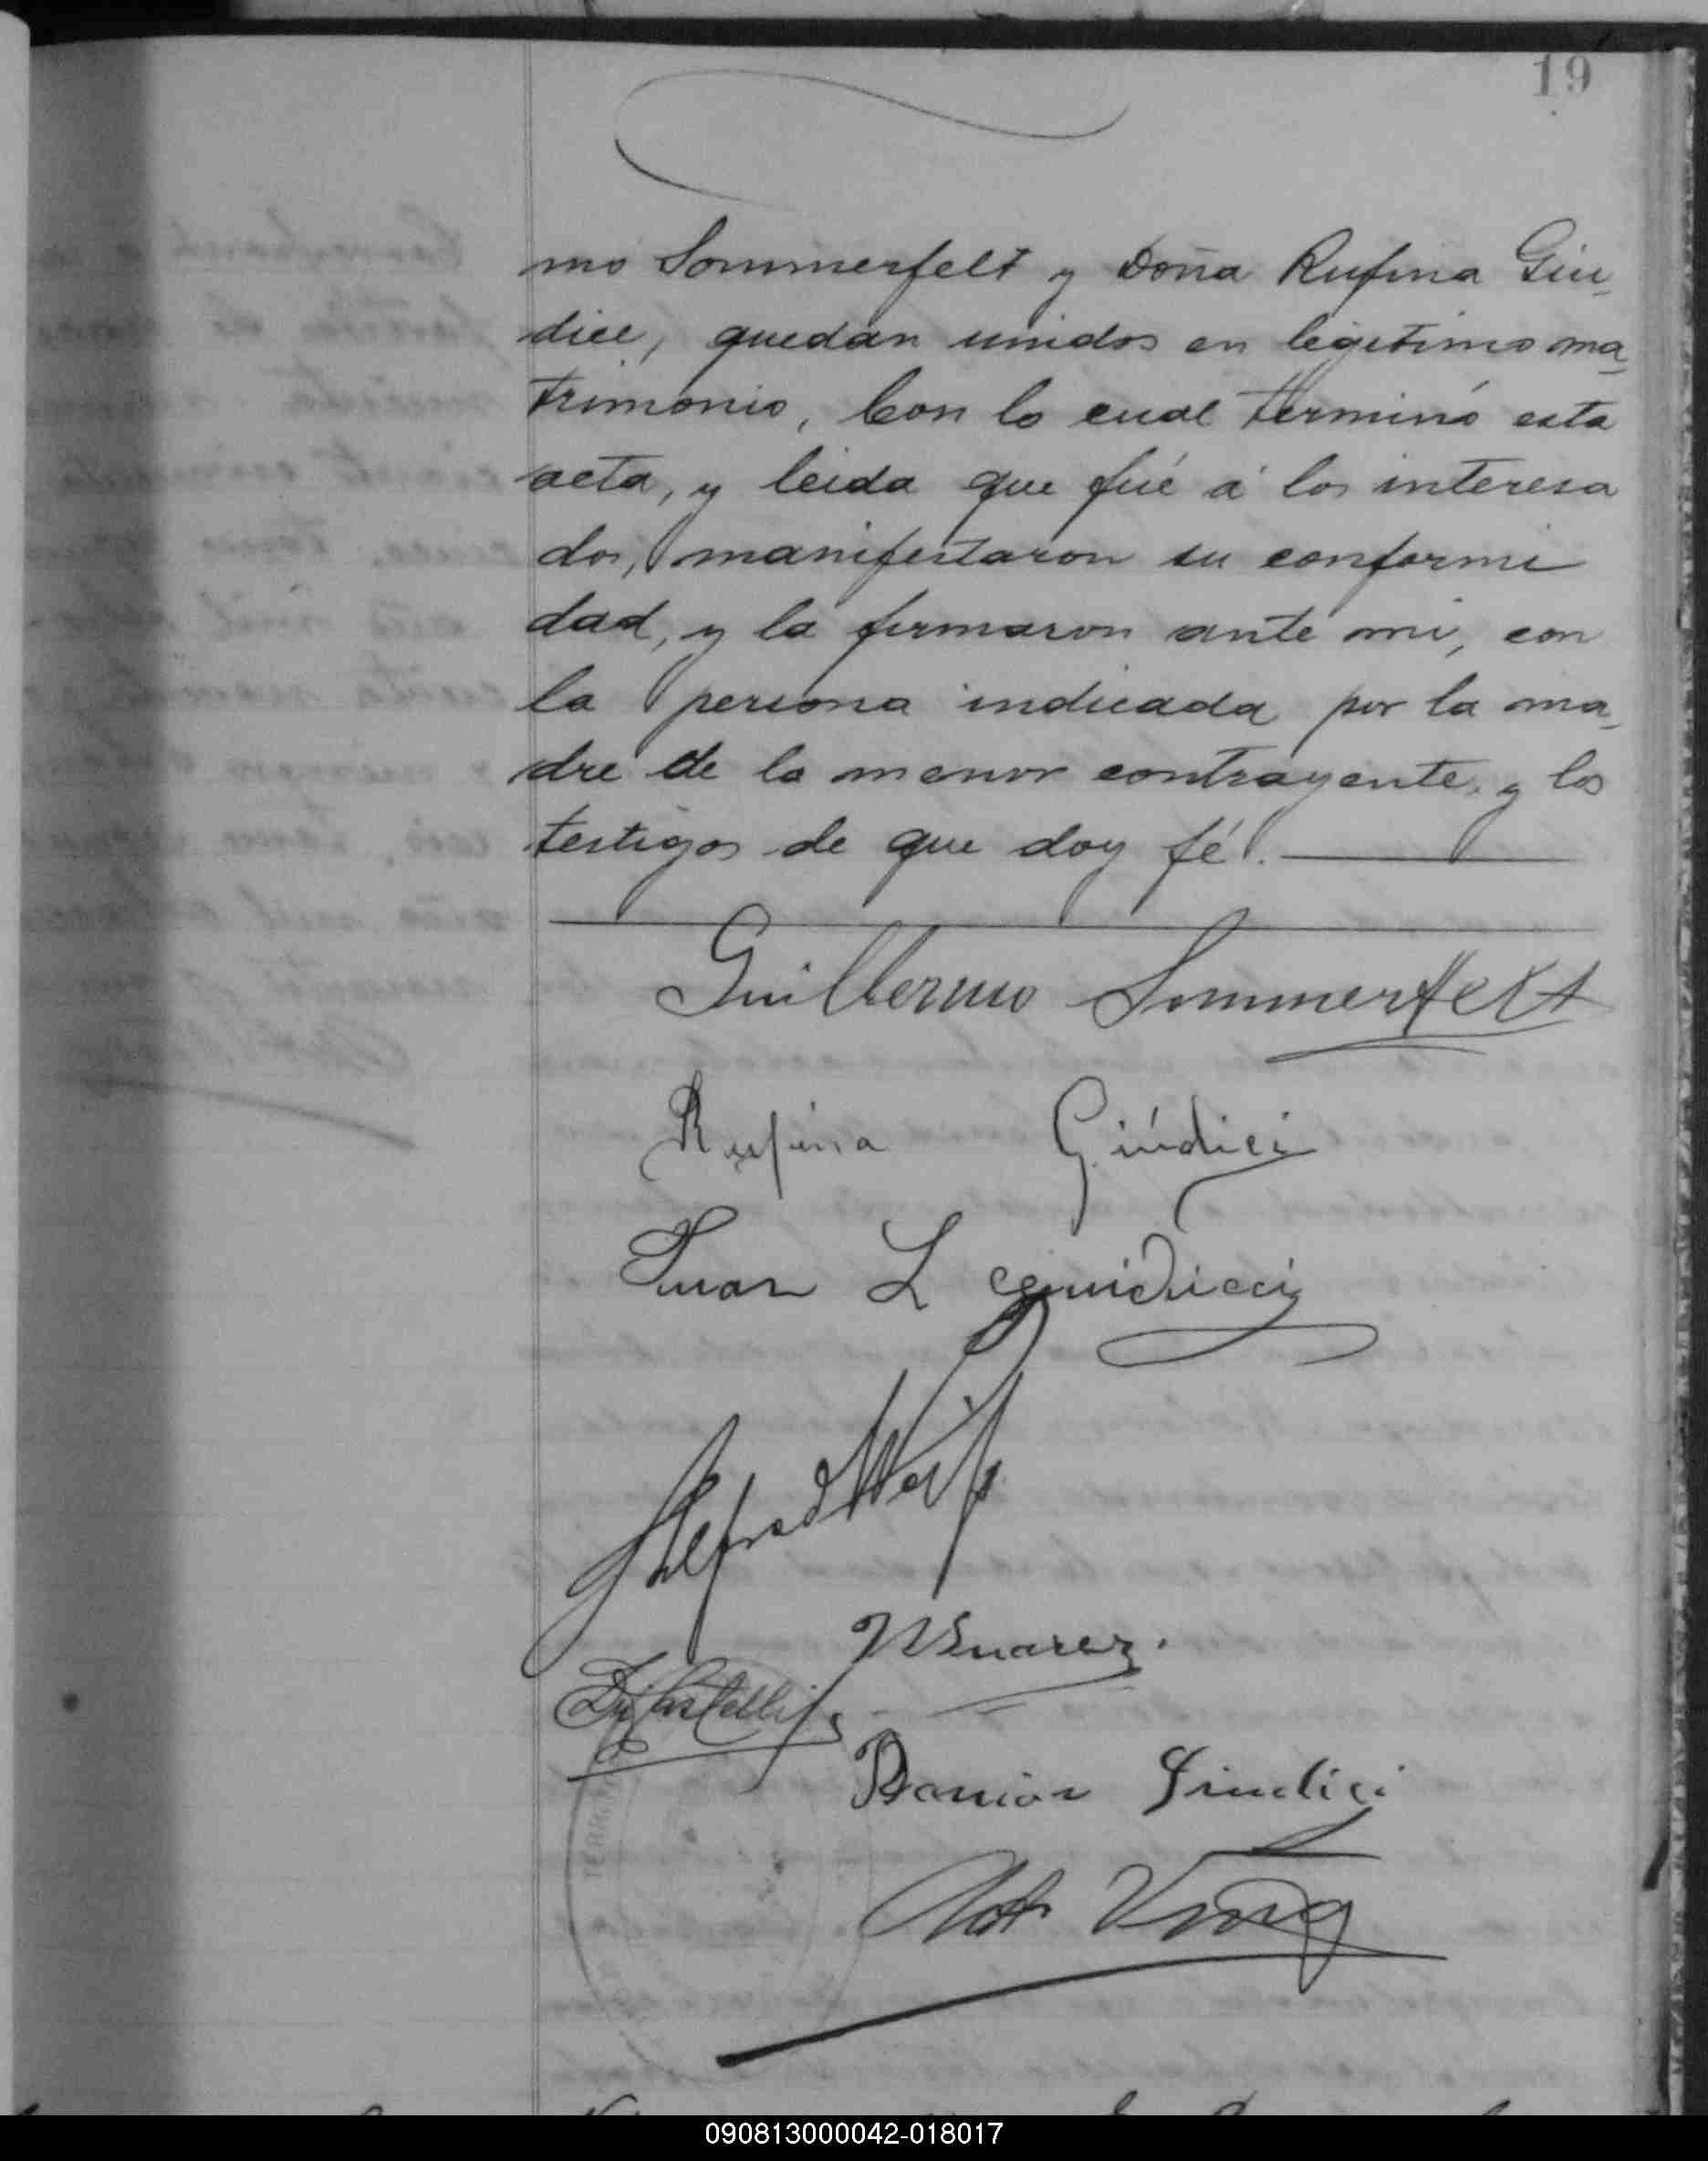 19
mo Sommerfelt y Doña Rufina Giu-
dice, quedan unidos en legitimo ma-
trimonio, Con lo cual terminó esta
acta, y leida que fué á los interesa
dos, manifestaron su conformi
dad, y la firmaron ante mi, con
la persona indicada por la ma-
dre de la menor contrayente, y los
testigos de que doy fé.
Guillermo Sommerfelt
Rufina Giúdici
Juan L Giudicci
Alfred
Suarez.
Ramón Giudici
090813000042-018017